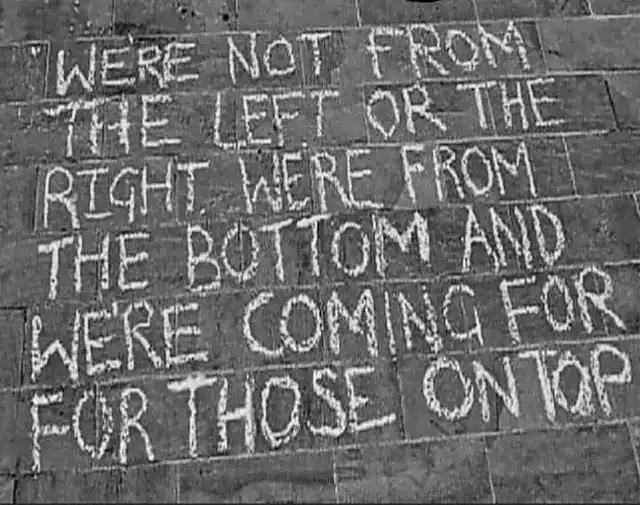 "WE'RE NOT FROM
THE LEFT OR THE
RIGHT. WE'RE FROM
THE BOTTOM AND
WE'RE COMING FOR
FOR THOSE ON TOP